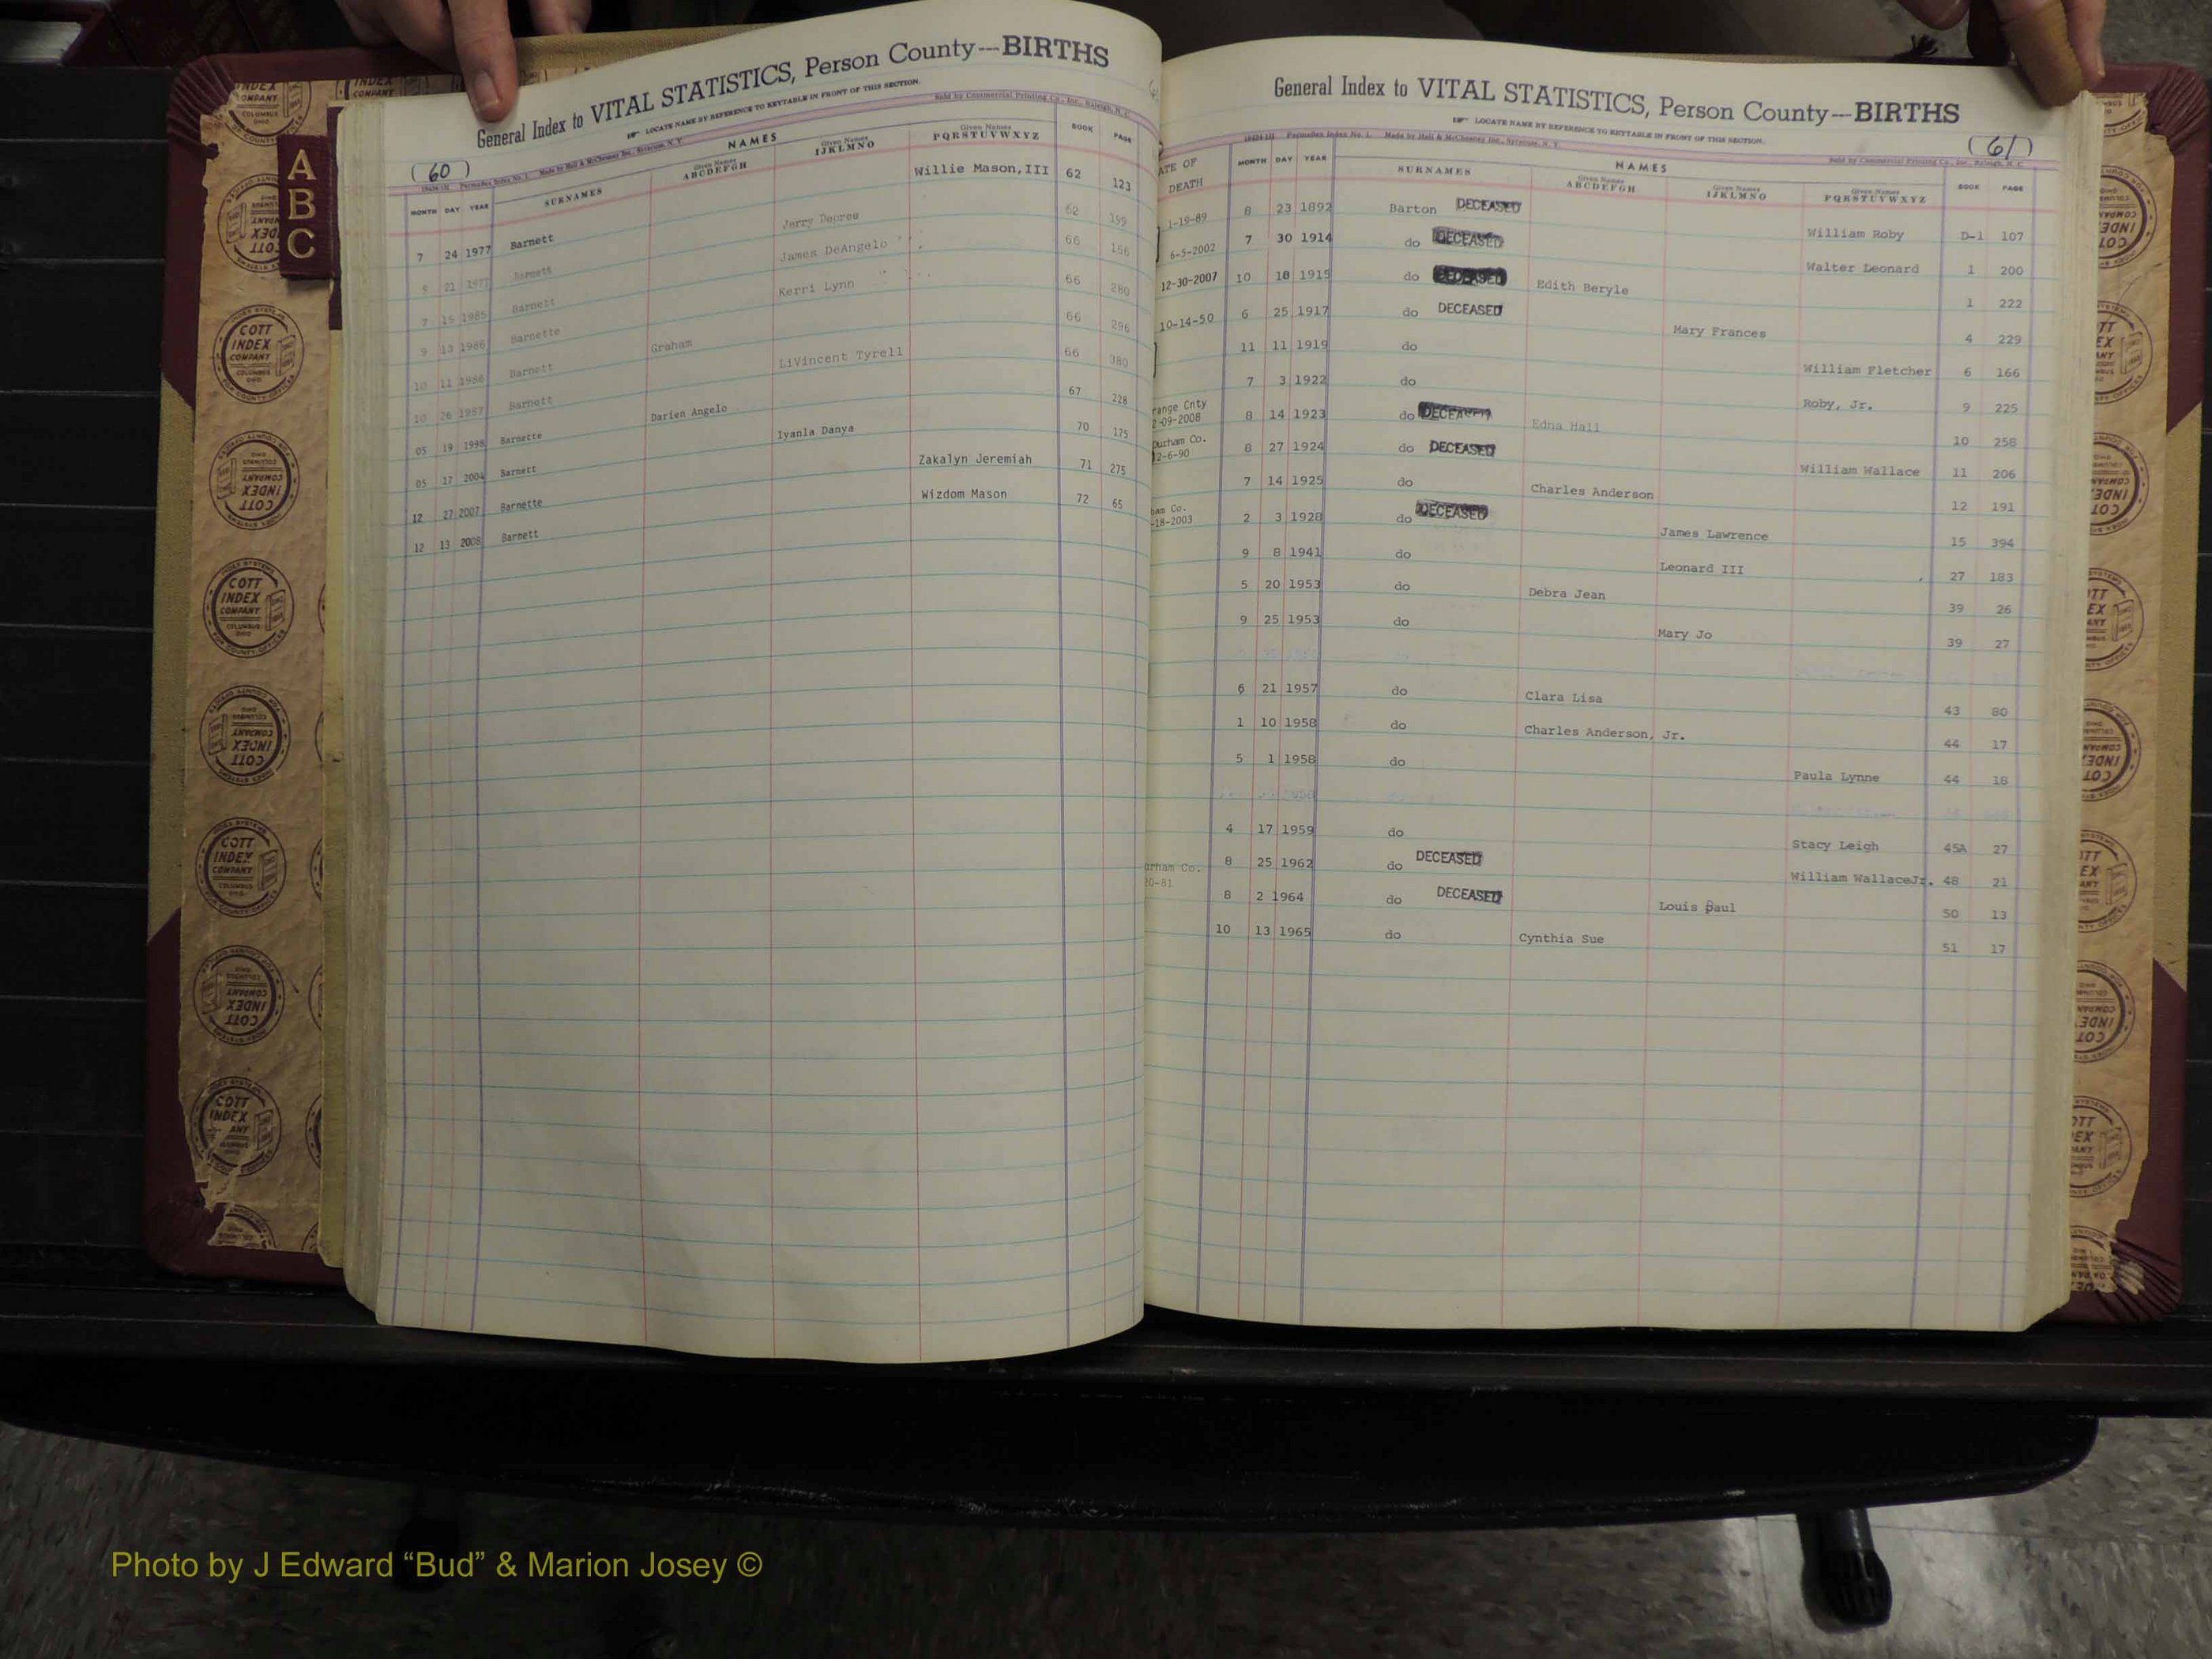 General Index to VITAL STATISTICS, Person County---BIRTHS
LOCATE NAME BY REFERENCE TO KEYTABLE IN FRONT OF THIS SECTION.
(60) Made by Hall & McChesney Inc., Syracuse, N. Y. Sold by Commercial Printing Co., Inc., Raleigh, N. C.
NAMES
MONTH DAY YEAR SURNAMES Given Names ABCDEFGH Given Names IJKLMNO Given Names PQRSTUVWXYZ BOOK PAGE
7 24 1977 Barnett Willie Mason, III 62 123
21 1977 Barnett Jerry 62 199
7 15 1985 Barnett James DeAngelo 66 156
9 13 1986 Barnette Kerri Lynn 66 280
10 11 1986 Barnett Graham 66 296
10 26 1987 Barnett LiVincent Tyrell 66 380
05 19 1998 Barnette Darien Angelo 67 228
05 17 2004 Barnett Iyanla Danya 70 175
12 27 2007 Barnette Zakalyn Jeremiah 71 275
12 13 2008 Barnett Wizdom Mason 72 65
A
B
C
General Index to VITAL STATISTICS, Person County---BIRTHS
LOCATE NAME BY REFERENCE TO KEYTABLE IN FRONT OF THIS SECTION.
Made by Hall & McChesney Inc., Syracuse, N. Y. Sold by Commercial Printing Co., Inc., Raleigh, N. C. (61)
NAMES
ATE OF DEATH MONTH DAY YEAR SURNAMES Given Names ABCDEFGH Given Names IJKLMNO Given Names PQRSTUVWXYZ BOOK PAGE
1-19-89 8 23 1892 Barton DECEASED William Roby D-1 107
6-5-2002 7 30 1914 do DECEASED Walter Leonard 1 200
12-30-2007 10 18 1915 do DECEASED Edith Beryle 1 222
10-14-50 6 25 1917 do DECEASED Mary Frances 4 229
11 11 1919 do William Fletcher 6 166
7 3 1922 do Roby, Jr. 9 225
range Cnty 2-09-2008 8 14 1923 do DECEASED Edna Hall 10 258
Durham Co. 2-6-90 8 27 1924 do DECEASED William Wallace 11 206
7 14 1925 do Charles Anderson 12 191
ham Co. -18-2003 2 3 1928 do DECEASED James Lawrence 15 394
9 8 1941 do Leonard III 27 183
5 20 1953 do Debra Jean 39 26
9 25 1953 do Mary Jo 39 27
6 21 1957 do Clara Lisa 43 80
1 10 1958 do Charles Anderson, Jr. 44 17
5 1 1958 do Paula Lynne 44 18
4 17 1959 do Stacy Leigh 45A 27
urham Co. 20-81 8 25 1962 do DECEASED William WallaceJr. 48 21
8 2 1964 do DECEASED Louis Paul 50 13
10 13 1965 do Cynthia Sue 51 17
COTT INDEX COMPANY COLUMBUS OHIO
Photo by J Edward “Bud” & Marion Josey ©